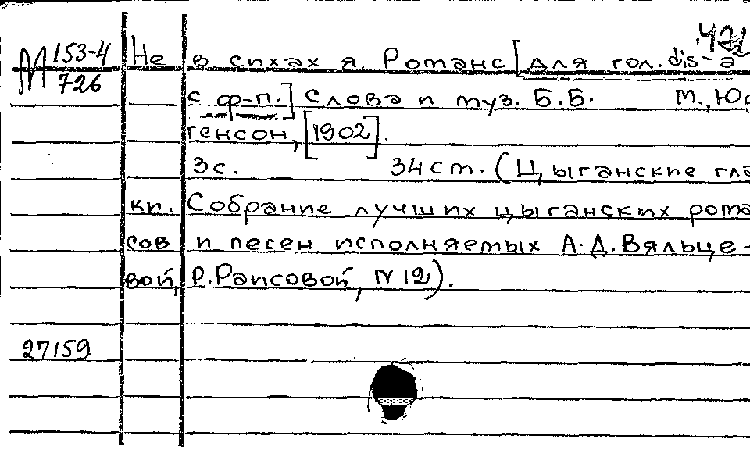 М 153-4
726
Не в силах я Романс [для гол. dis-a
с ф-п.] Слова и муз. Б.Б. М., Юр
генсон, [1902].
3с. 34 ст. (Цыганские гла
ки. Собрание лучших цыганских рома
сов и песен исполняемых А.Д.Вяльце-
вой, Р.Раисовой, N 12).
27159